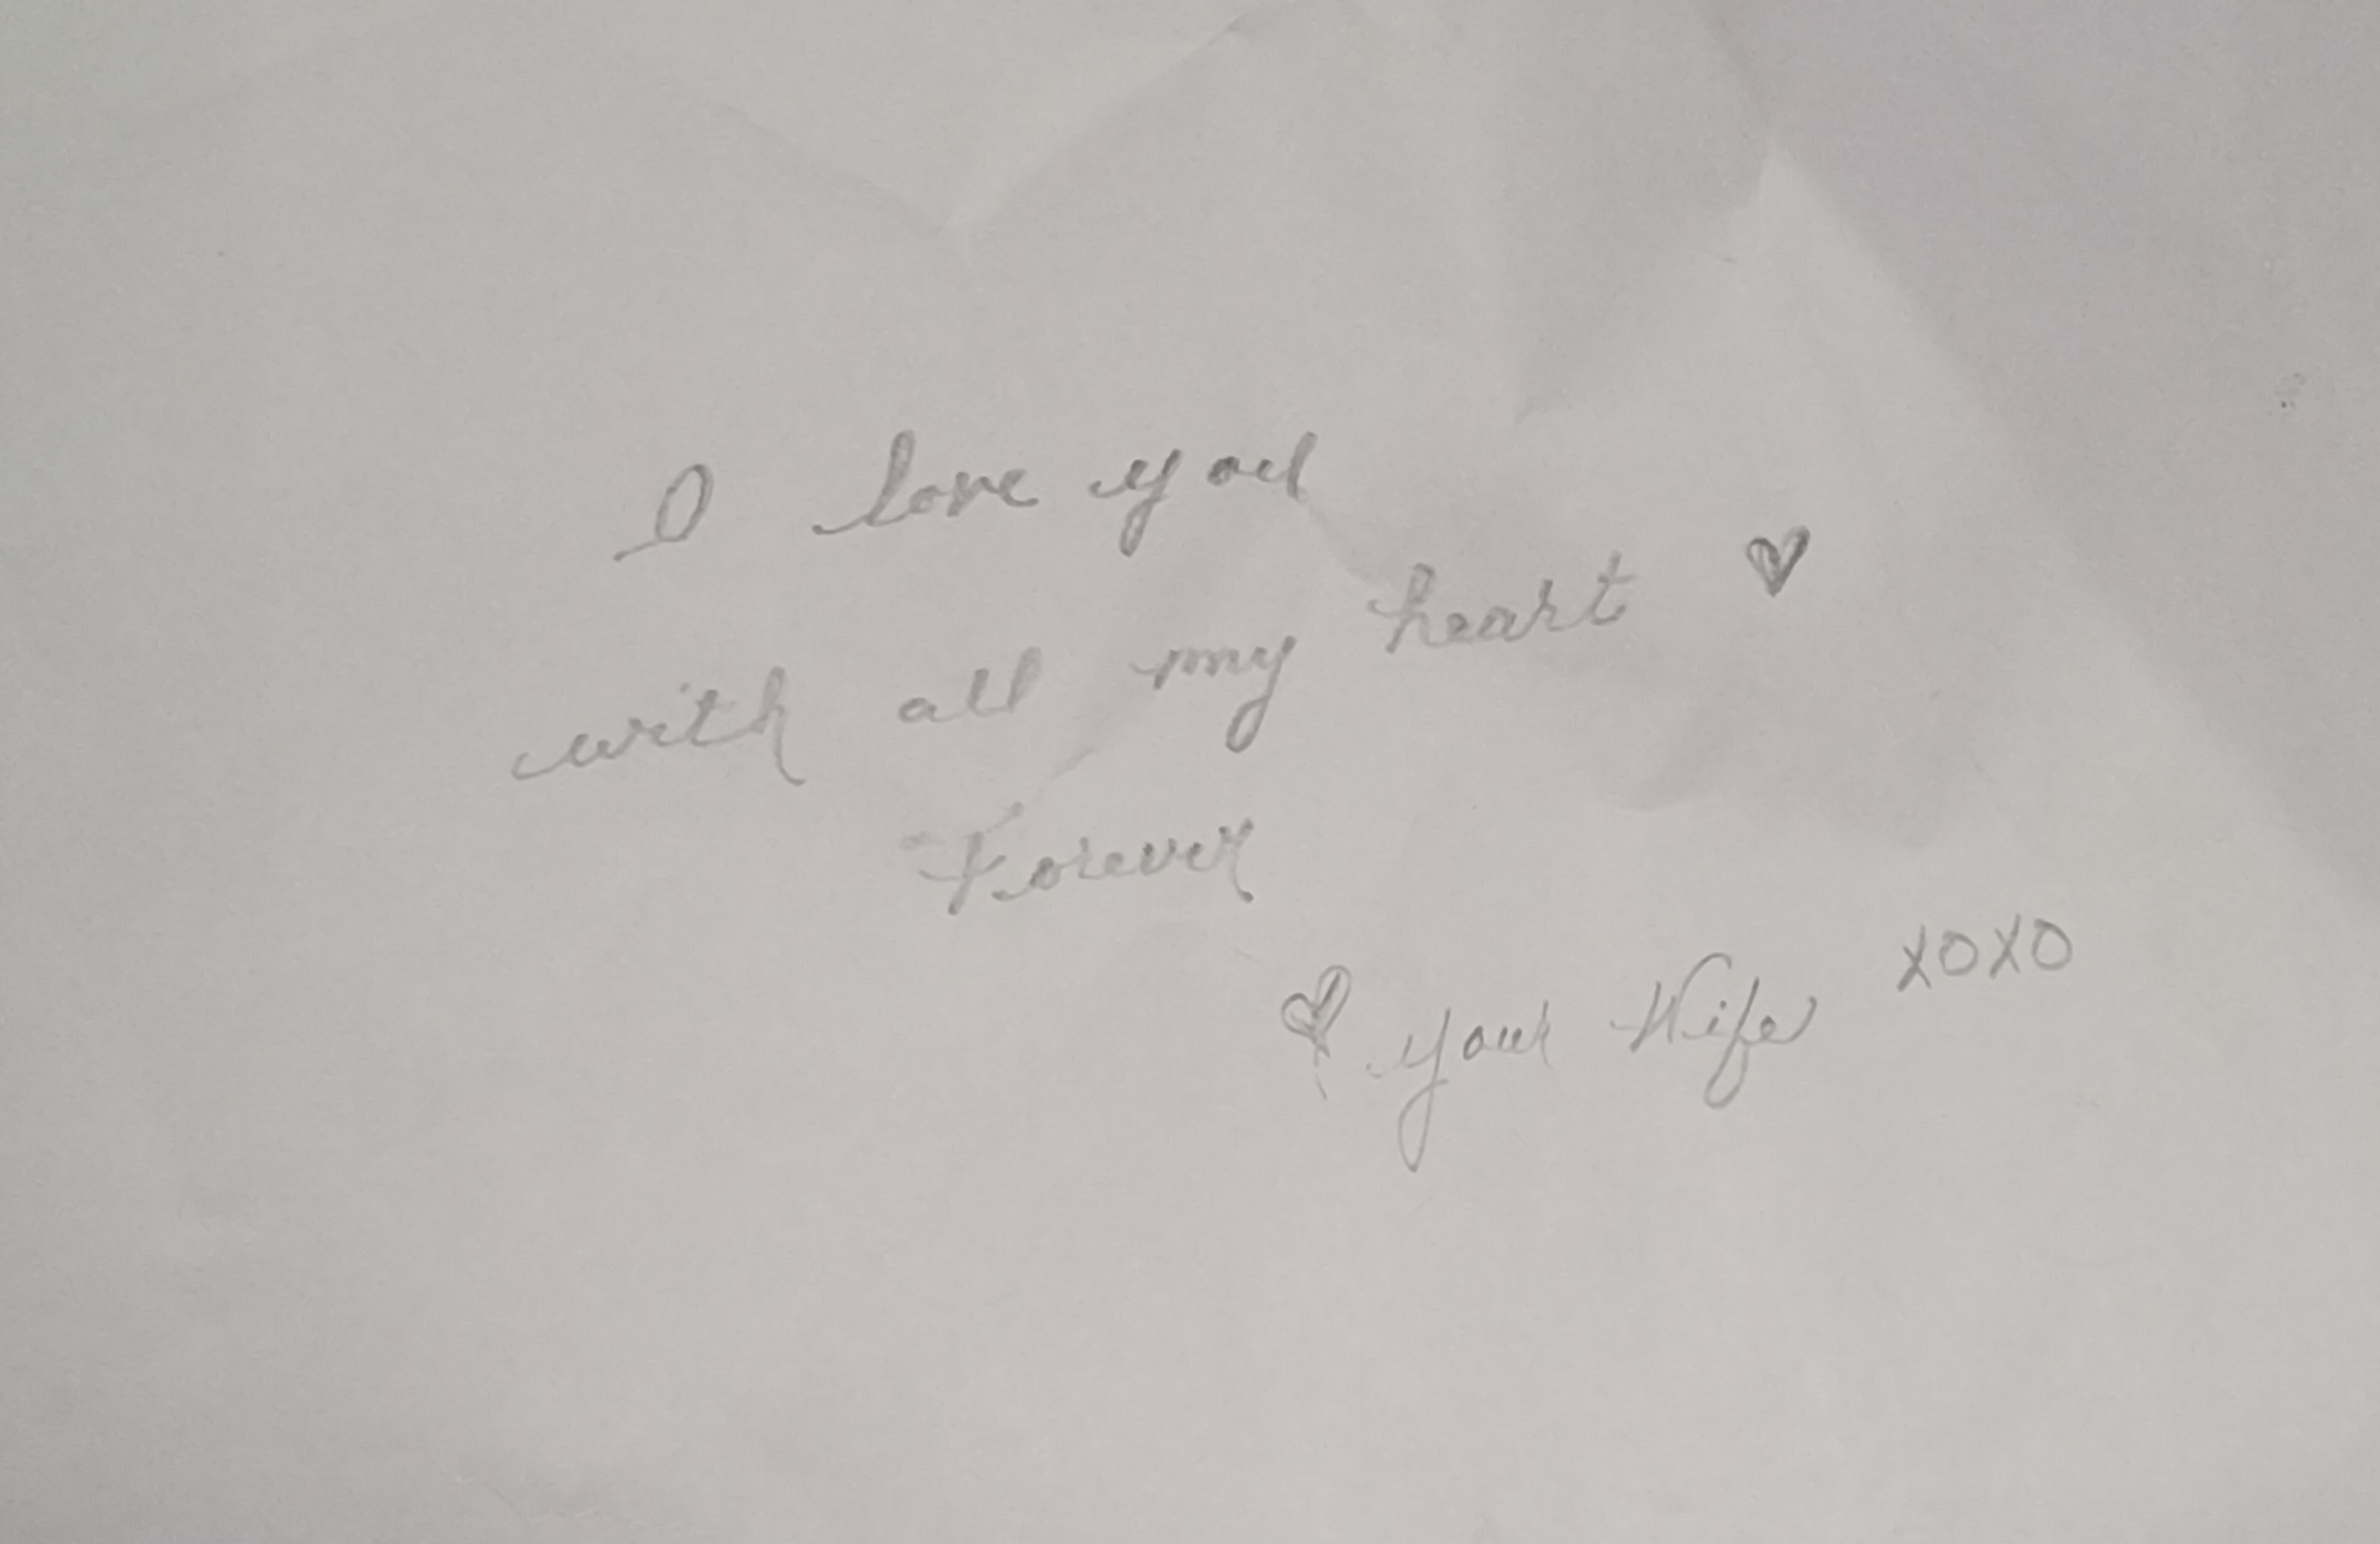 I love you
with all my heart ♥
Forever
♥ your Wife XOXO